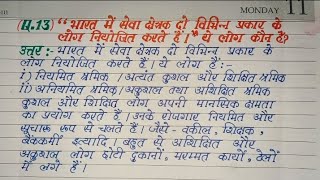 MONDAY 11
प्र.13) "भारत में सेवा क्षेत्रक दो विभिन्न प्रकार के
लोग नियोजित करते हैं।" ये लोग कौन हैं?
उत्तर:- भारत में सेवा क्षेत्रक दो विभिन्न प्रकार के
लोग नियोजित करते हैं। ये लोग हैं:-
i) नियमित श्रमिक / अत्यंत कुशल और शिक्षित श्रमिक
ii) अनियमित श्रमिक / अकुशल तथा अशिक्षित श्रमिक
कुशल और शिक्षित लोग अपनी मानसिक क्षमता
का प्रयोग करते हैं। उनके रोजगार नियमित और
सुचारू रूप से चलते हैं। जैसे- वकील, शिक्षक,
बैंककर्मी इत्यादि। बहुत से अशिक्षित और
अकुशल लोग छोटी दुकानों, मरम्मत कार्यों, ठेलों
में लगे हैं।